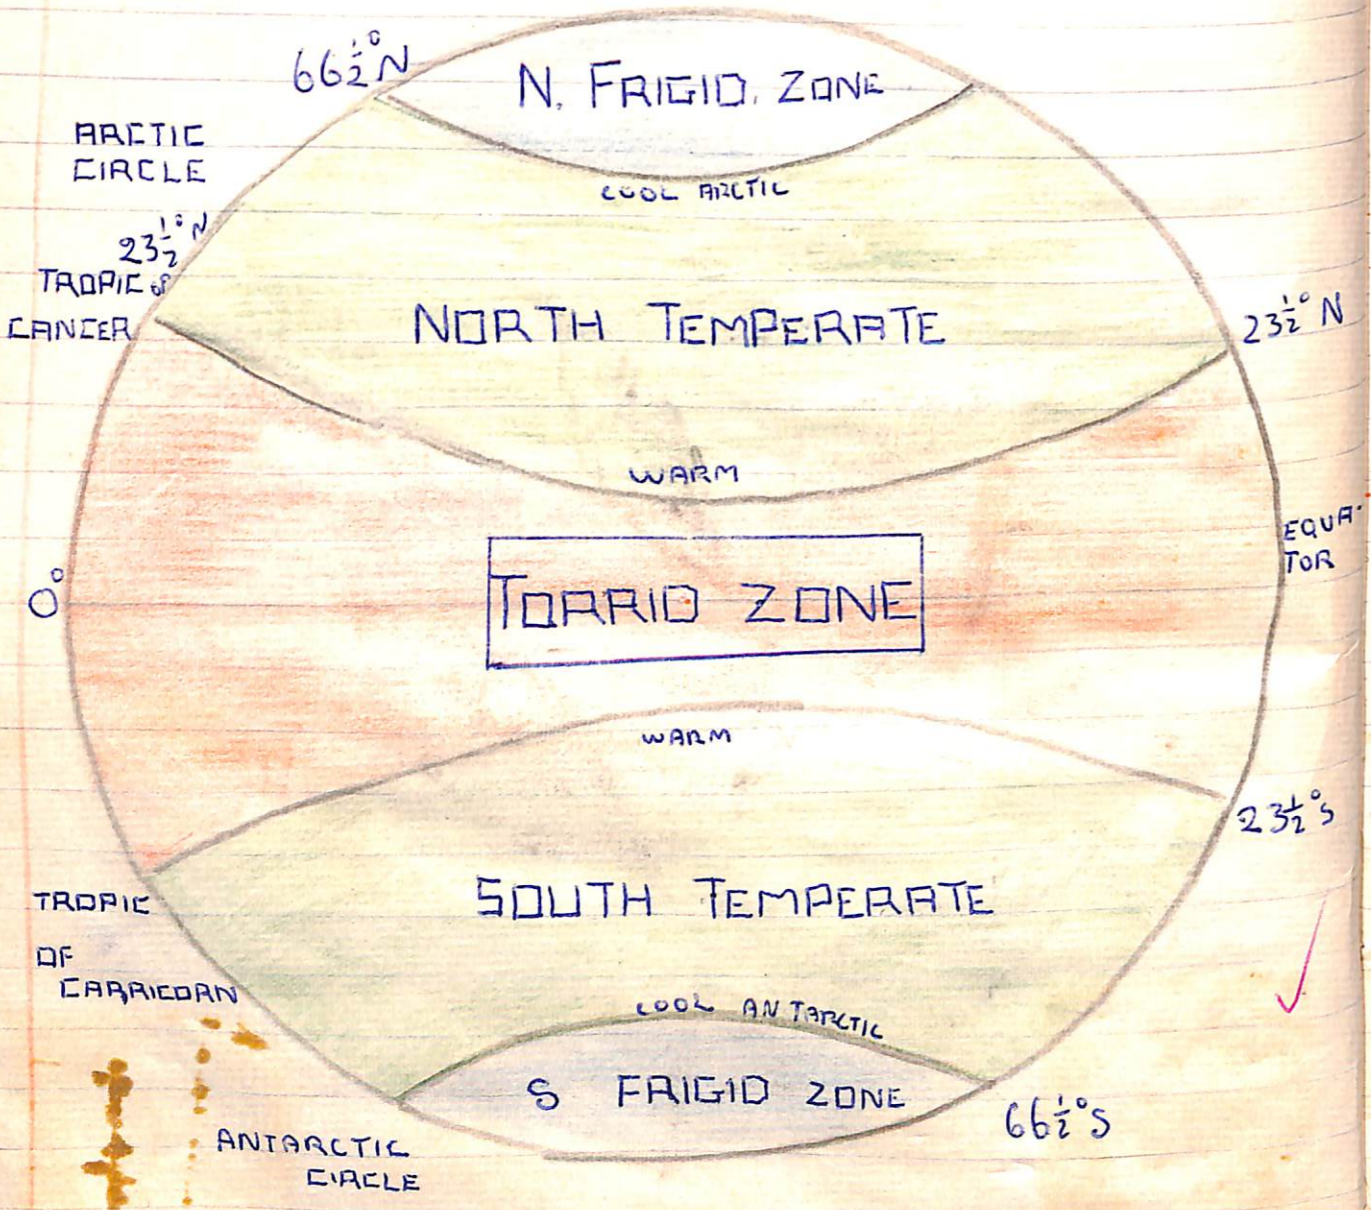 66½°N
N. FRIGID. ZONE
ARCTIC
CIRCLE
COOL ARCTIC
23½°N
TROPIC OF
CANCER
NORTH TEMPERATE
23½°N
WARM
EQUA-
TOR
0°
TORRID ZONE
WARM
23½°S
TROPIC
OF
CAPRICORN
SOUTH TEMPERATE
COOL ANTARCTIC
S FRIGID ZONE
66½°S
ANTARCTIC
CIRCLE